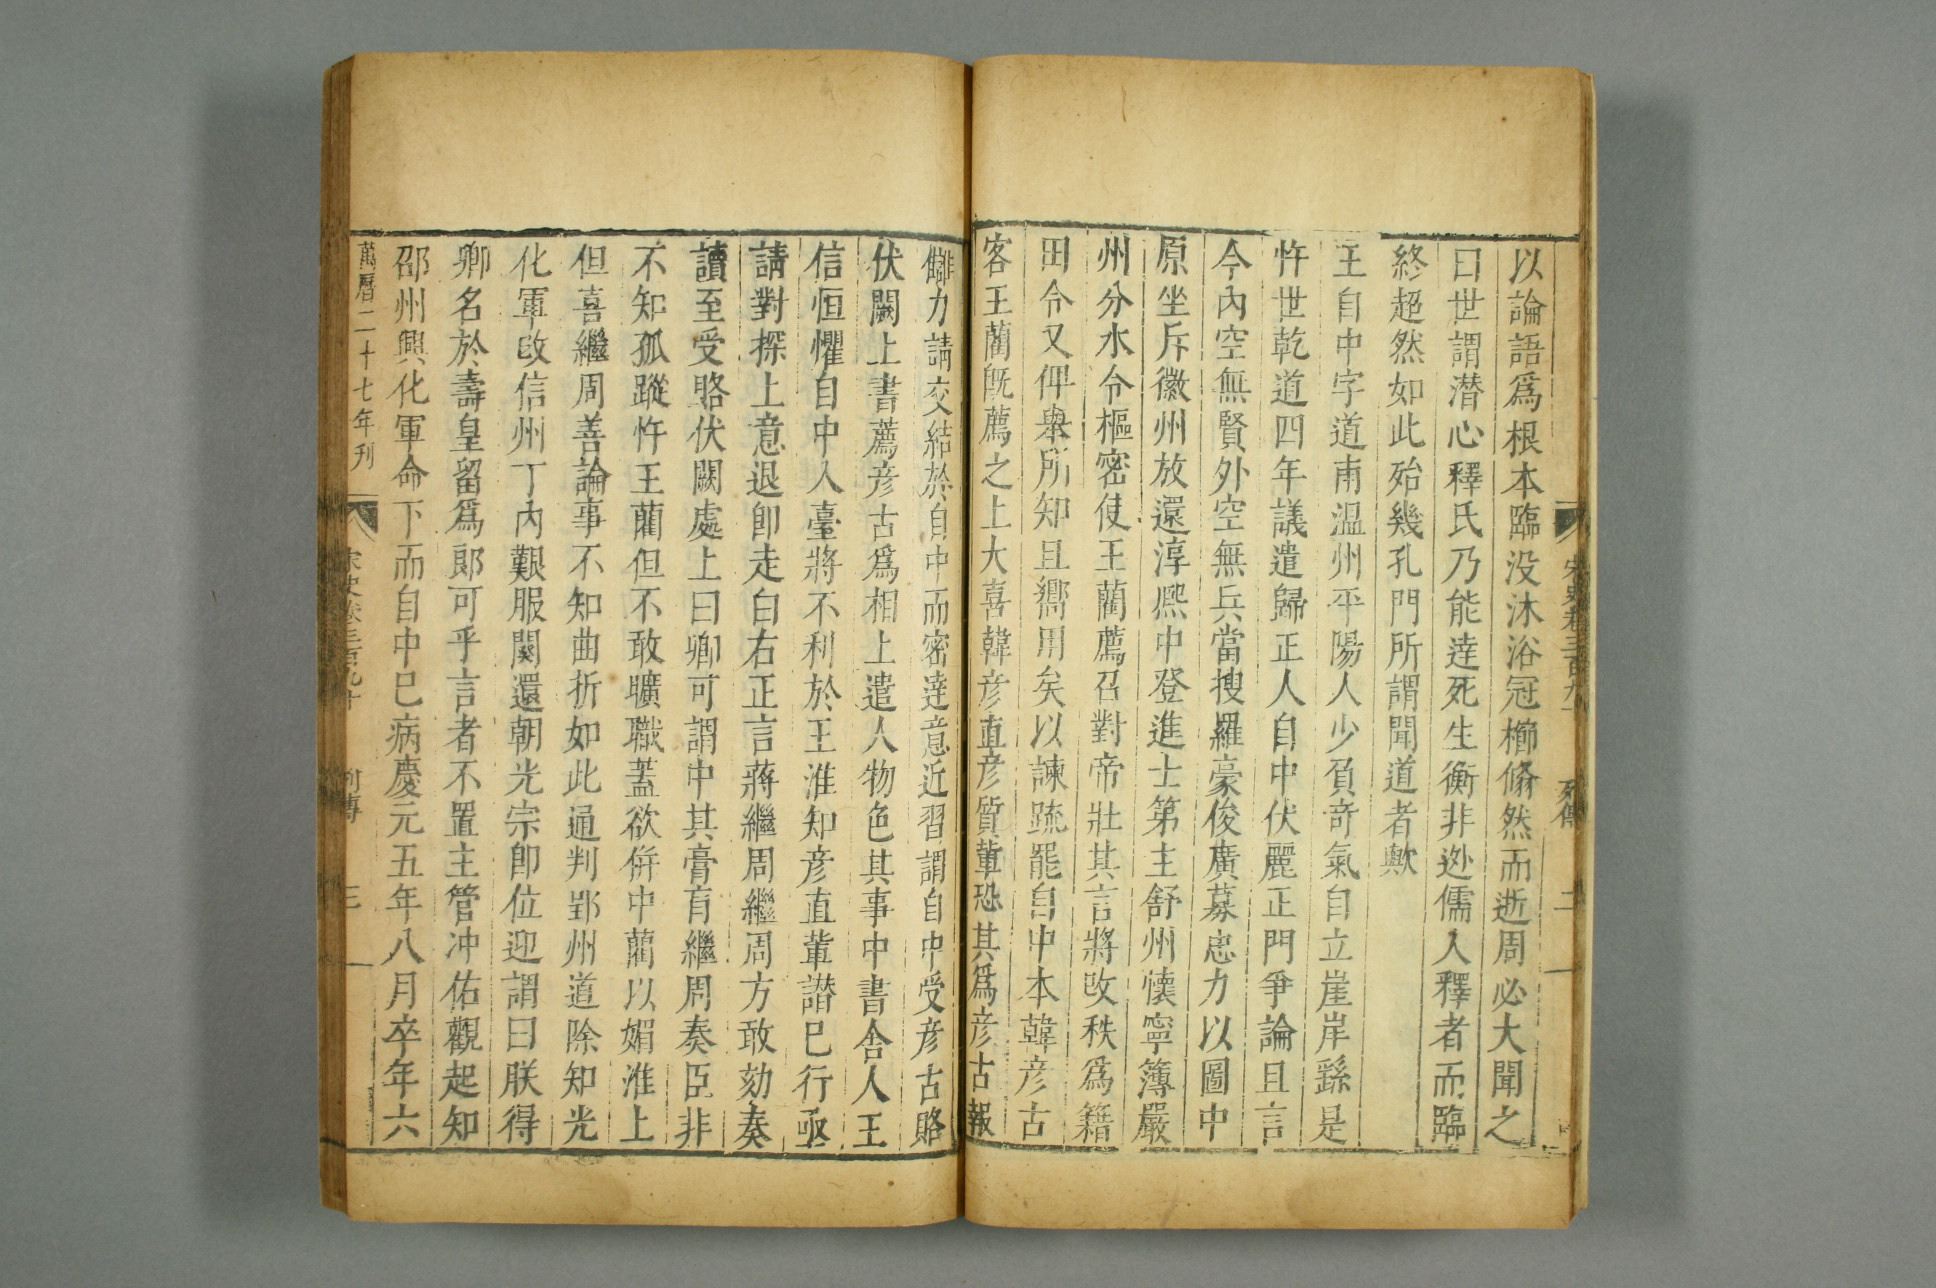 宋史卷三百九十
列傳
二
以論語爲根本臨没沐浴冠櫛翛然而逝周必大聞之
曰世謂潜心釋氏乃能逹死生衡非逃儒入釋者而臨
終超然如此殆幾孔門所謂聞道者歟
王自中字道甫温州平陽人少負竒氣自立崖岸繇是
忤世乾道四年議遣歸正人自中伏麗正門爭論且言
今内空無賢外空無兵當搜羅豪俊廣募忠力以圖中
原坐斥徽州放還淳熈中登進士第主舒州懷寧簿嚴
州分水令樞密使王藺薦召對帝壯其言將改秩爲籍
田令又俾舉所知且嚮用矣以諫䟽罷自中本韓彦古
客王藺旣薦之上大喜韓彦直彦質軰恐其爲彦古報
讎力請交結於自中而密逹意近習謂自中受彦古賂
伏闕上書薦彦古爲相上遣人物色其事中書舎人王
信恒懼自中入臺將不利於王淮知彦直軰譖已行亟
請對探上意退卽走白右正言蔣繼周繼周方敢劾奏
讀至受賂伏闕處上曰卿可謂中其膏肓繼周奏臣非
不知孤蹤忤王藺但不敢曠職蓋欲倂中藺以媚淮上
但喜繼周善論事不知曲折如此通判郢州道除知光
化軍改信州丁内艱服闋還朝光宗卽位迎謂曰朕得
卿名於壽皇留爲郎可乎言者不置主管冲佑觀起知
邵州興化軍命下而自中已病慶元五年八月卒年六
萬曆二十七年刋
宋史卷三百九十
列傳
三